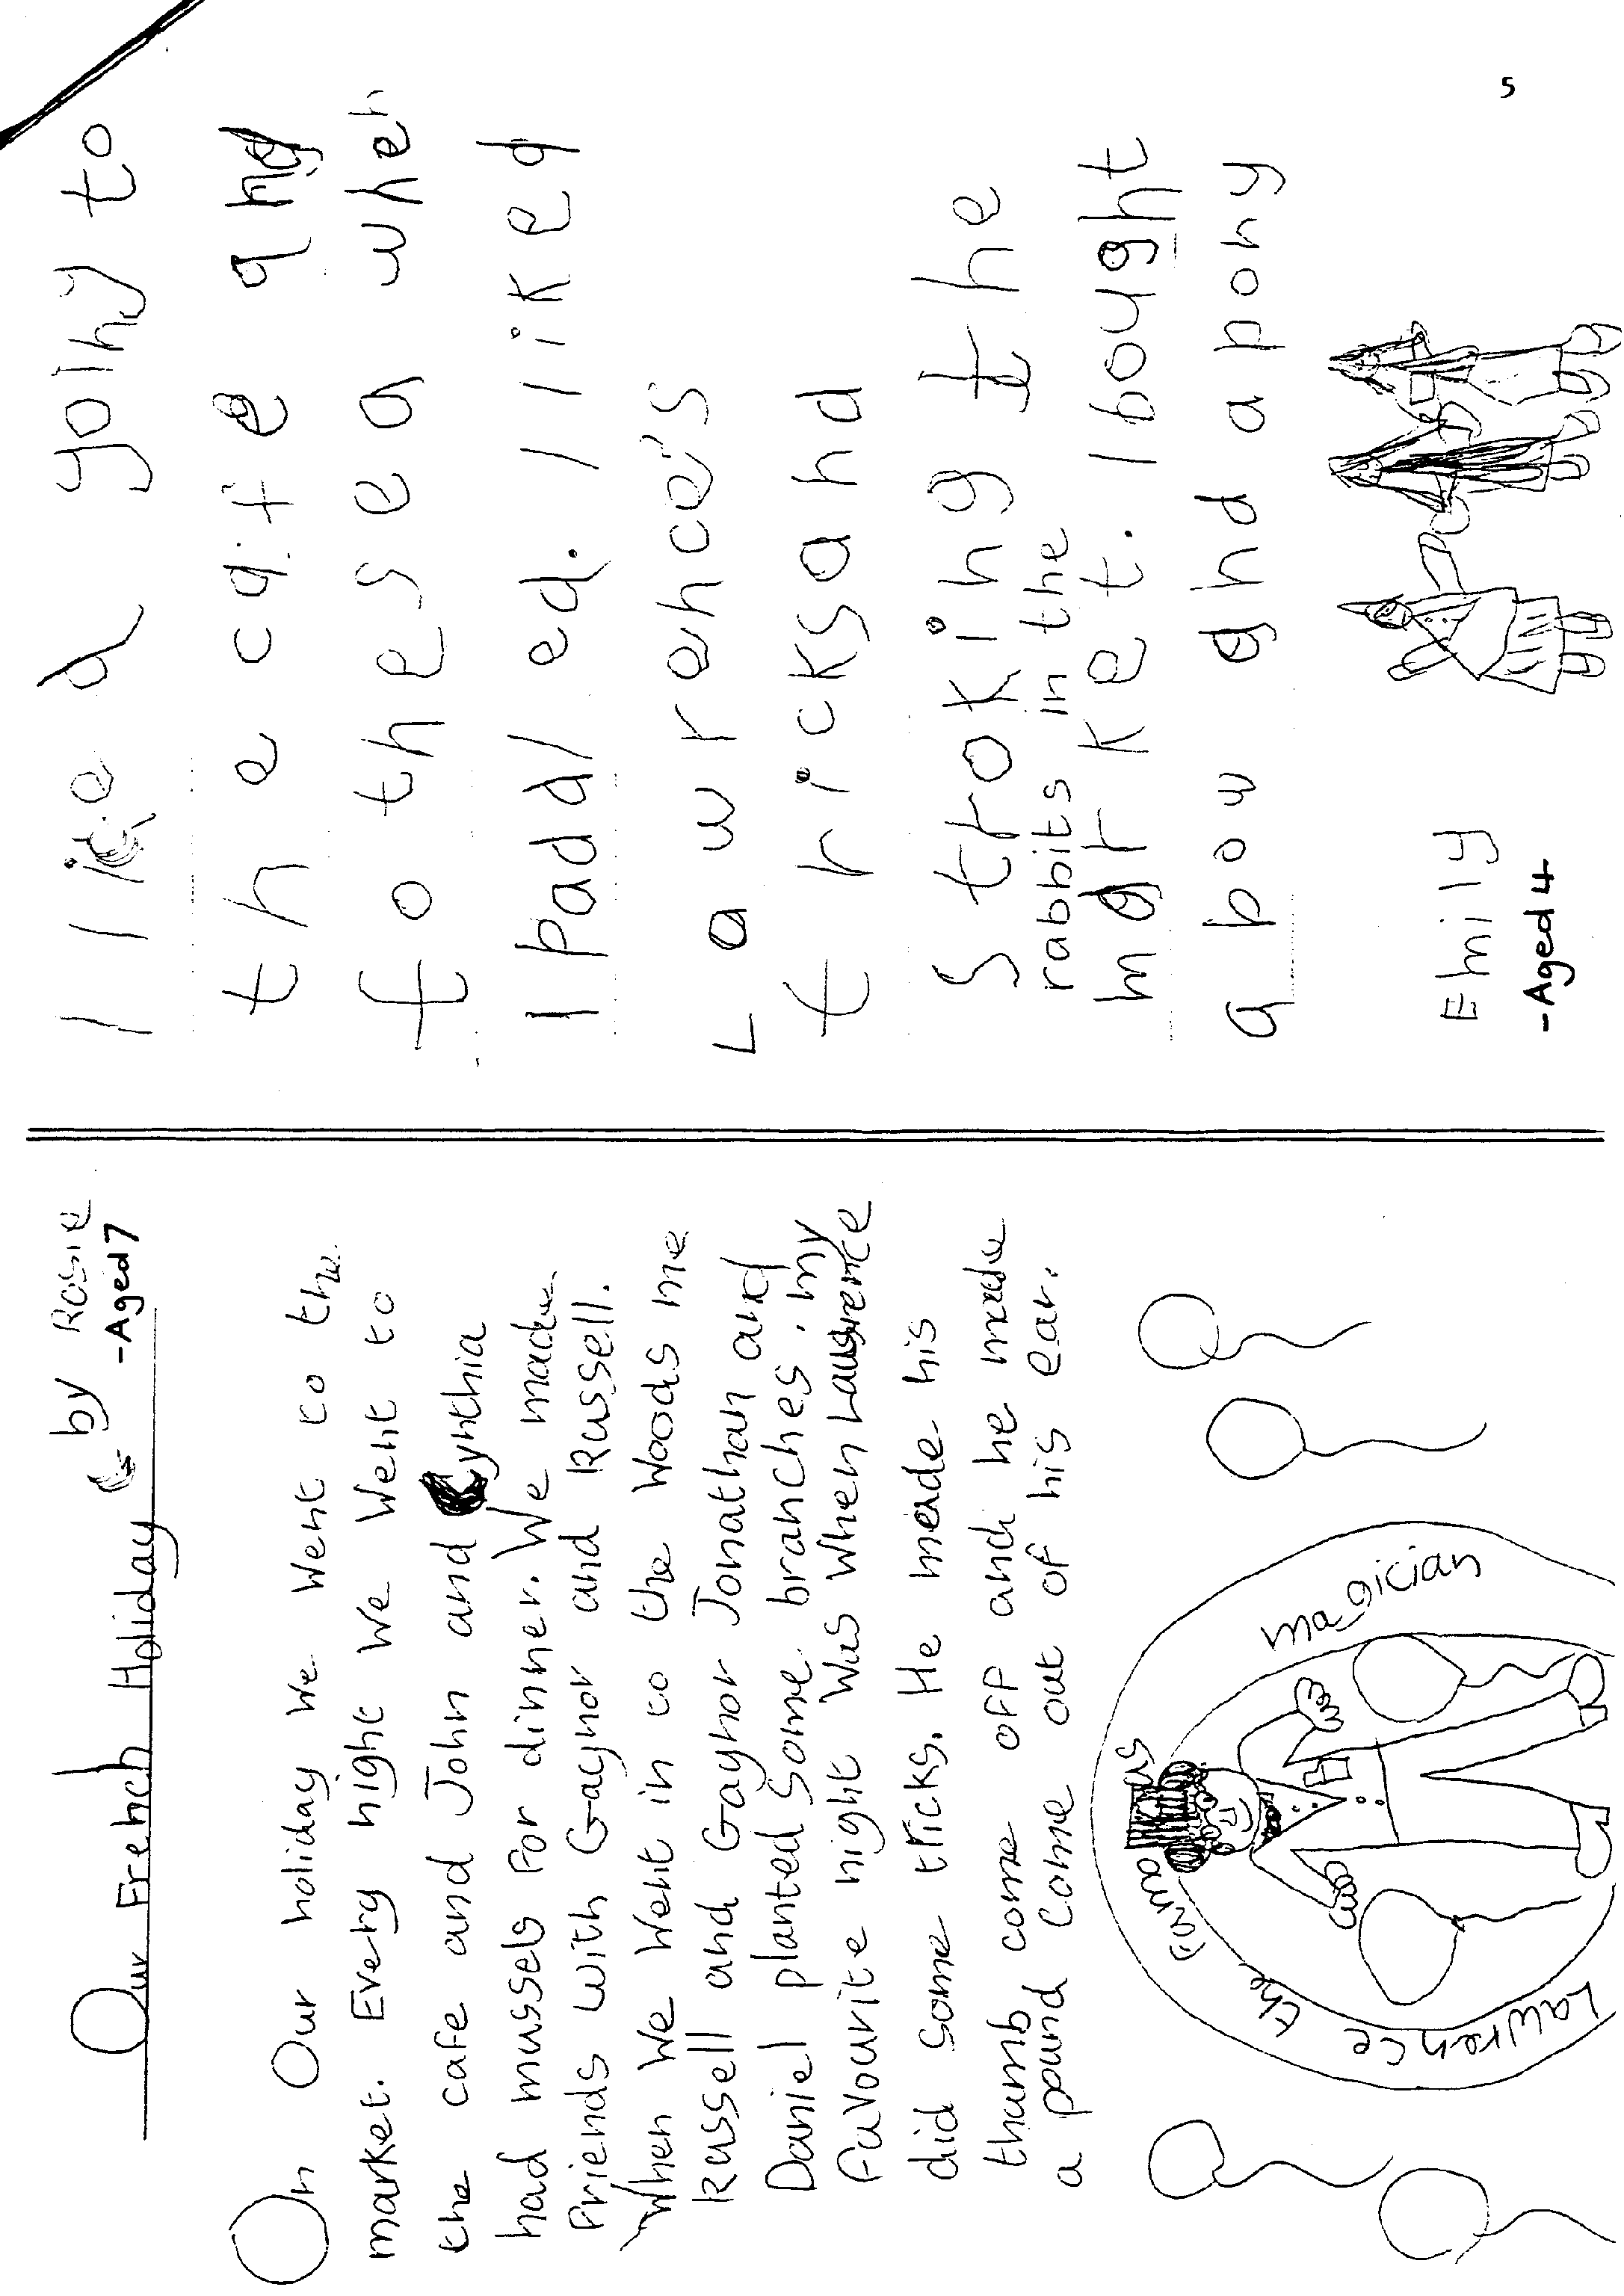 Our French Holiday by Rosie
-Aged 7
On Our holiday we went to the
market. Every night we went to
the cafe and John and Cynthia
had mussels for dinner. We made
friends with Gaynor and Russell.
When we went in to the woods me
Russell and Gaynor Jonathan and
Daniel planted some branches. my
favourite night was when Lawrence
did some tricks. He made his
thumb come off and he made
a pound come out of his ear.
famous
Lawrence the magician
I liked going to
the cafe and
to the sea when
I paddled. I liked
Lawrence's
tricks and
stroking the
rabbits in the
market. I bought
a bow and a pony
Emily
-Aged 4
5